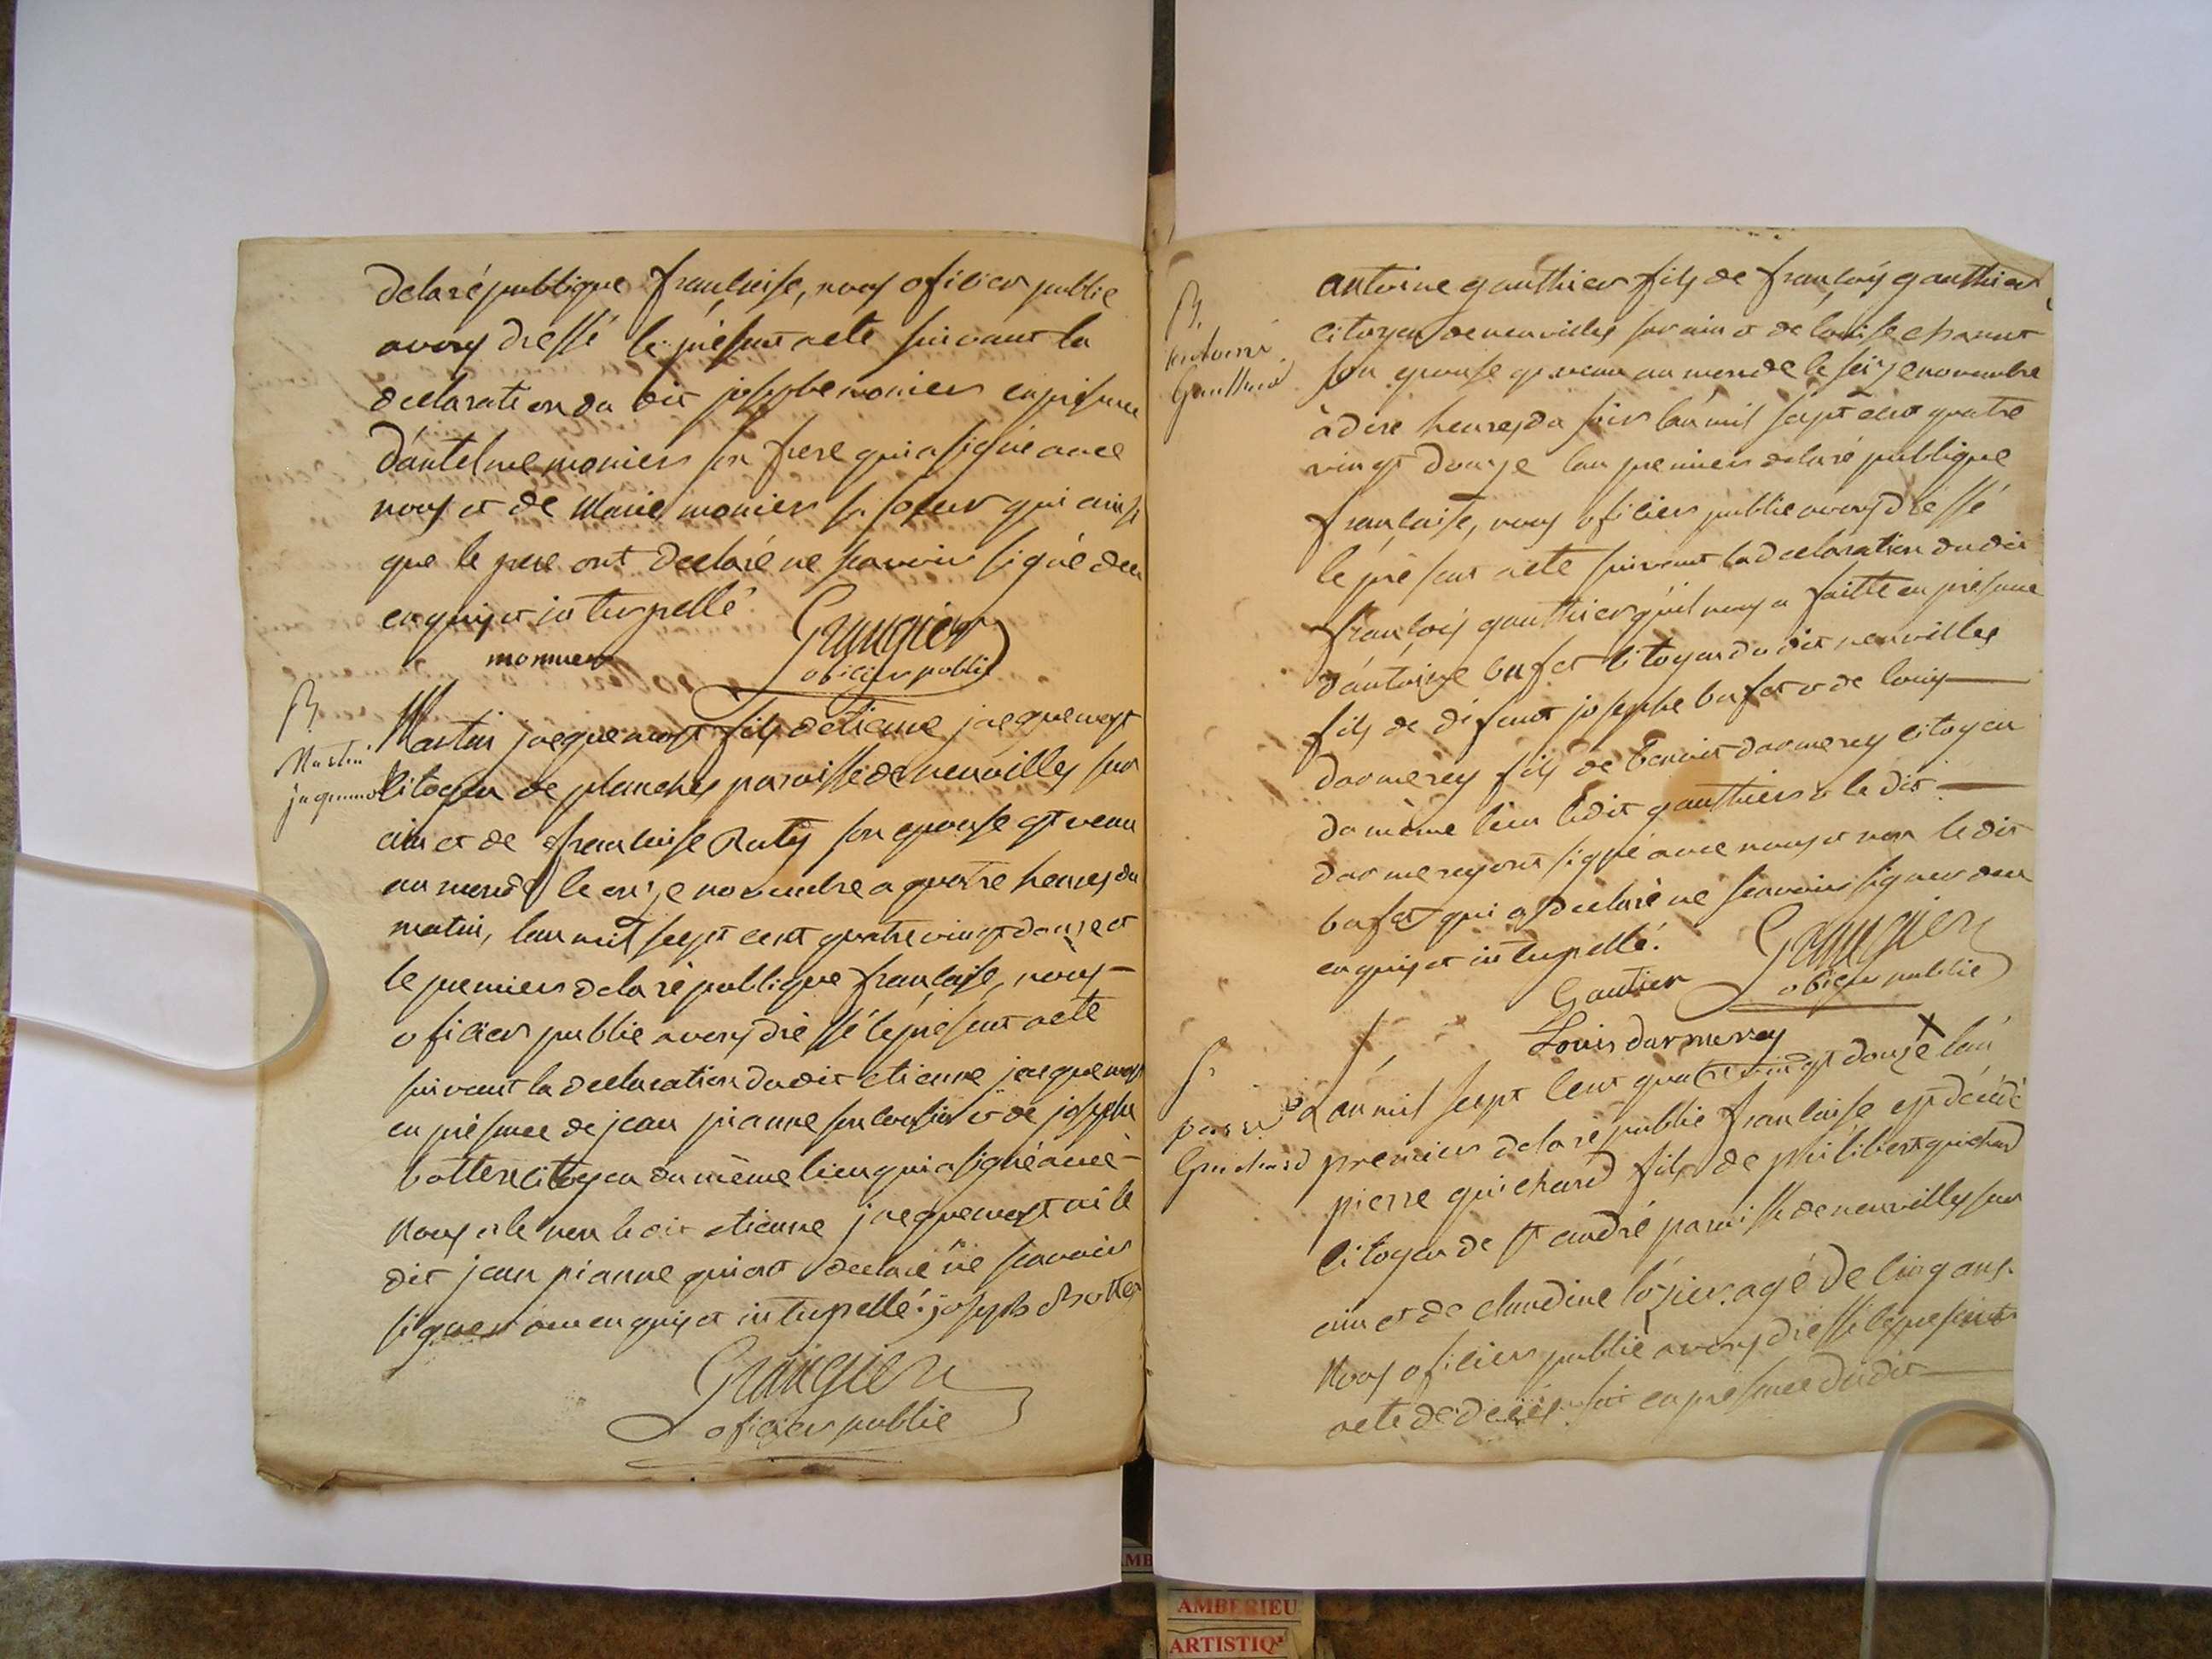 de la république francaise, nous oficier public
avons dressé le présent acte suivant la
declaration du dit josephe monier en presence
d'antelme monier son frere qui a signé avec
nous et de Marie monier sa soeur qui ainsi
que le pere ont declaré ne scavoir signé de ce
enquis et interpellé
monnier
Grangier
oficier public
B.
Martin
jaquemo
Martin jacquemost fils d'etienne jacquemost
citoyen de planches paroisse de neuvilles sur
ain et de francoise Ruty son epouse est venu
au monde le onze novembre a quatre heures du
matin, l'an mil sept cent quatre vingt douze et
le premier de la république francaise, nous
oficier public avons dressé le présent acte
suivant la declaration du dit etienne jacquemost
en présence de jean pianne son cousin et de josephe
botter citoyen du même lieu qui a signé avec
nous et le non le dit etienne jacquemost ni le
dit jean pianne qui ont declaré ne scavoir
signer de ce enquis et interpellé. joseph Botter
Grangier
oficier public
B.
antoine
Gauthier
antoine gauthier fils de françois gauthier
citoyen de neuvilles sur ain et de louise charnet
son epouse est venu au monde le seize novembre
à dix heures du soir l'an mil sept cent quatre
vingt douze l'an premier de la ré publique
francaise, nous oficier public avons dressé
le présent acte suivant la declaration du dit
françois gauthier qu'il nous a faitte en présence
d'antoine bufet citoyen du dit neuvilles
fils de défunt josephe bufet et de louis
darmerey fils de benoit darmerey citoyen
du même lieu le dit gauthier et le dit
darmerey ont signé avec nous et non le dit
bufet qui a declaré ne scavoir signer de ce
enquis et interpellé.
Grangier
oficier public
Gautier
Louis darmerey
S.
pierre
Guichard
L'an mil sept cent quatre vingt douze l'an
premier de la ré public francaise est décédé
pierre guichard fils de philibert guichard
citoyen de st andré paroisse de neuvilles sur
ain et de claudine lozier. agé de cinq ans.
Nous oficier public avons dressé le present
acte de décès en presence du dit
AMBERIEU
ARTISTIQ